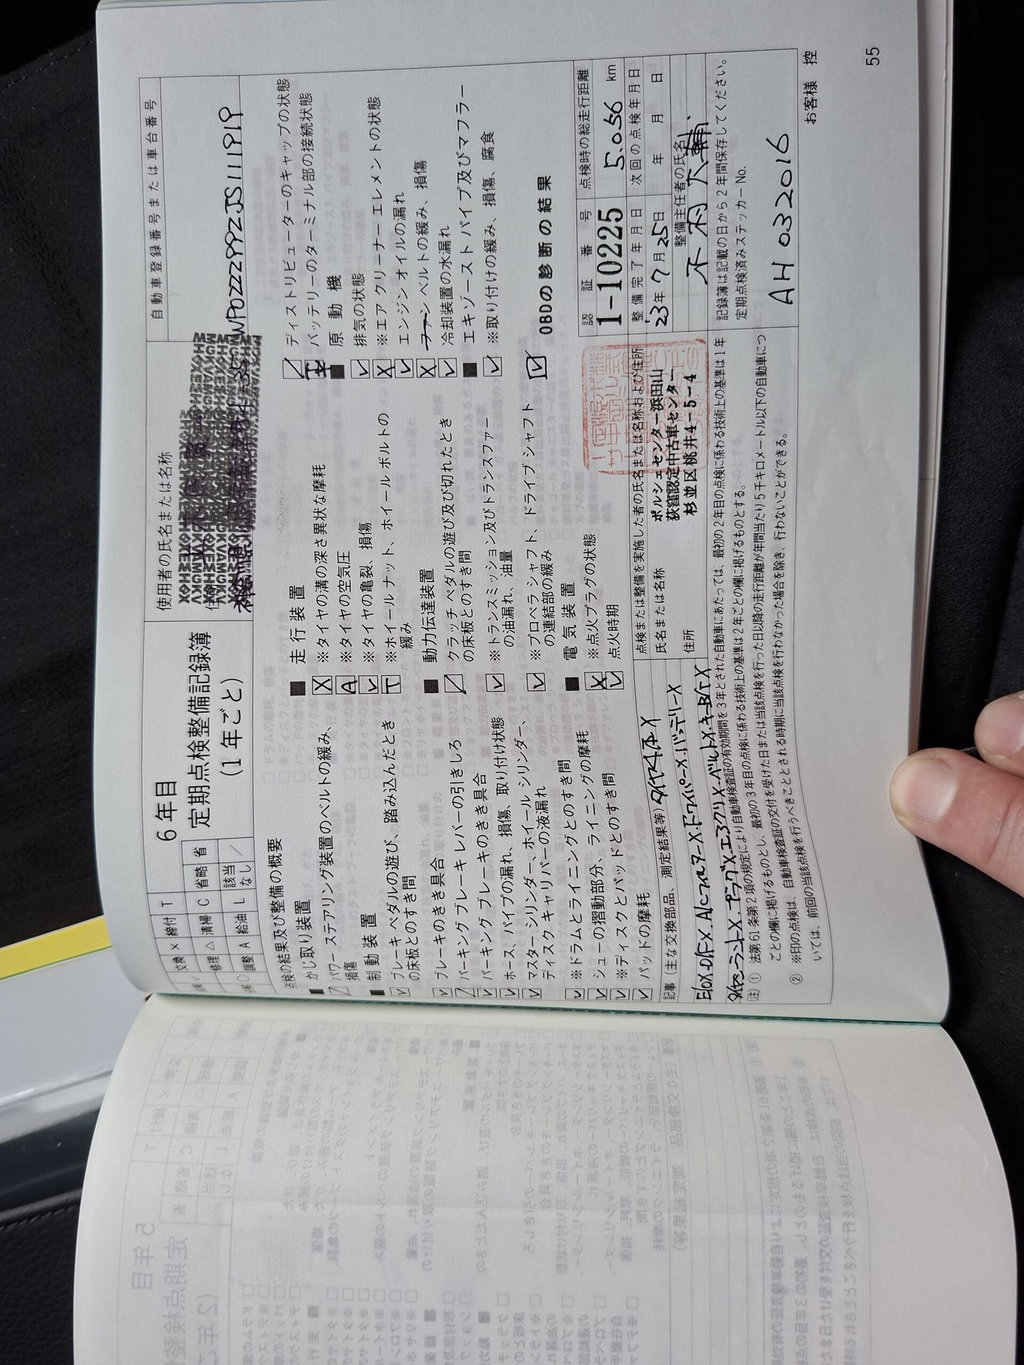 6年目
定期点検整備記録簿
(1年ごと)
使用者の氏名または名称
自動車登録番号または車台番号
WP0ZZZ99ZJS111919
交換 × 締付 T
修理 △ 清掃 C 省略 省
調整 A 給油 L 該当なし /
点検の結果及び整備の概要
■ かじ取り装置
パワーステアリング装置のベルトの緩み、損傷
■ 制動装置
ブレーキペダルの遊び、踏み込んだときの床板とのすき間
ブレーキのきき具合
パーキングブレーキレバーの引きしろ
パーキングブレーキのきき具合
ホース、パイプの漏れ、損傷、取り付け状態
マスターシリンダー、ホイールシリンダー、ディスクキャリパーの液漏れ
※ドラムとライニングとのすき間
シューの摺動部分、ライニングの摩耗
※ディスクとパッドとのすき間
パッドの摩耗
■ 走行装置
※タイヤの溝の深さ異状な摩耗
※タイヤの空気圧
※タイヤの亀裂、損傷
※ホイールナット、ホイールボルトの緩み
■ 動力伝達装置
クラッチペダルの遊び及び切れたときの床板とのすき間
※トランスミッション及びトランスファーの油漏れ、油量
※プロペラシャフト、ドライブシャフトの連結部の緩み
■ 電気装置
※点火プラグの状態
点火時期
ディストリビューターのキャップの状態
バッテリーのターミナル部の接続状態
■ 原動機
排気の状態
※エアクリーナーエレメントの状態
エンジンオイルの漏れ
ファンベルトの緩み、損傷
冷却装置の水漏れ
■ エキゾーストパイプ及びマフラー
※取り付けの緩み、損傷、腐食
OBDの診断の結果
記事 (主な交換部品、測定結果等) タイヤ4本×
E/O×.O/F×.A/Cフィルター×.Fワイパー×.バッテリー×
点検または整備を実施した者の氏名または名称および住所
氏名または名称
ポルシェセンター浜田山
荻窪認定中古車センター
住所
杉並区桃井4-5-4
認証番号
1-10225
点検時の総走行距離
5,056 km
整備完了年月日
23年7月25日
次回の点検年月日
年 月 日
整備主任者の氏名
記録簿は記載の日から2年間保存してください。
定期点検済みステッカーNo.
AH 032016
(注) ① 法第61条第2項の規定により自動車検査証の有効期間を3年とされた自動車にあたっては、最初の2年目の点検に係わる技術上の基準は1年ごとの欄に掲げるものとし、最初の3年目の点検に係わる技術上の基準は2年ごとの欄に掲げるものとする。
② ※印の点検は、自動車検査証の交付を受けた日または当該点検を行った日以降の走行距離が年間当たり5千キロメートル以下の自動車については、前回の当該点検を行うべきこととされる時期に当該点検を行わなかった場合を除き、行わないことができる。
お客様 控
55